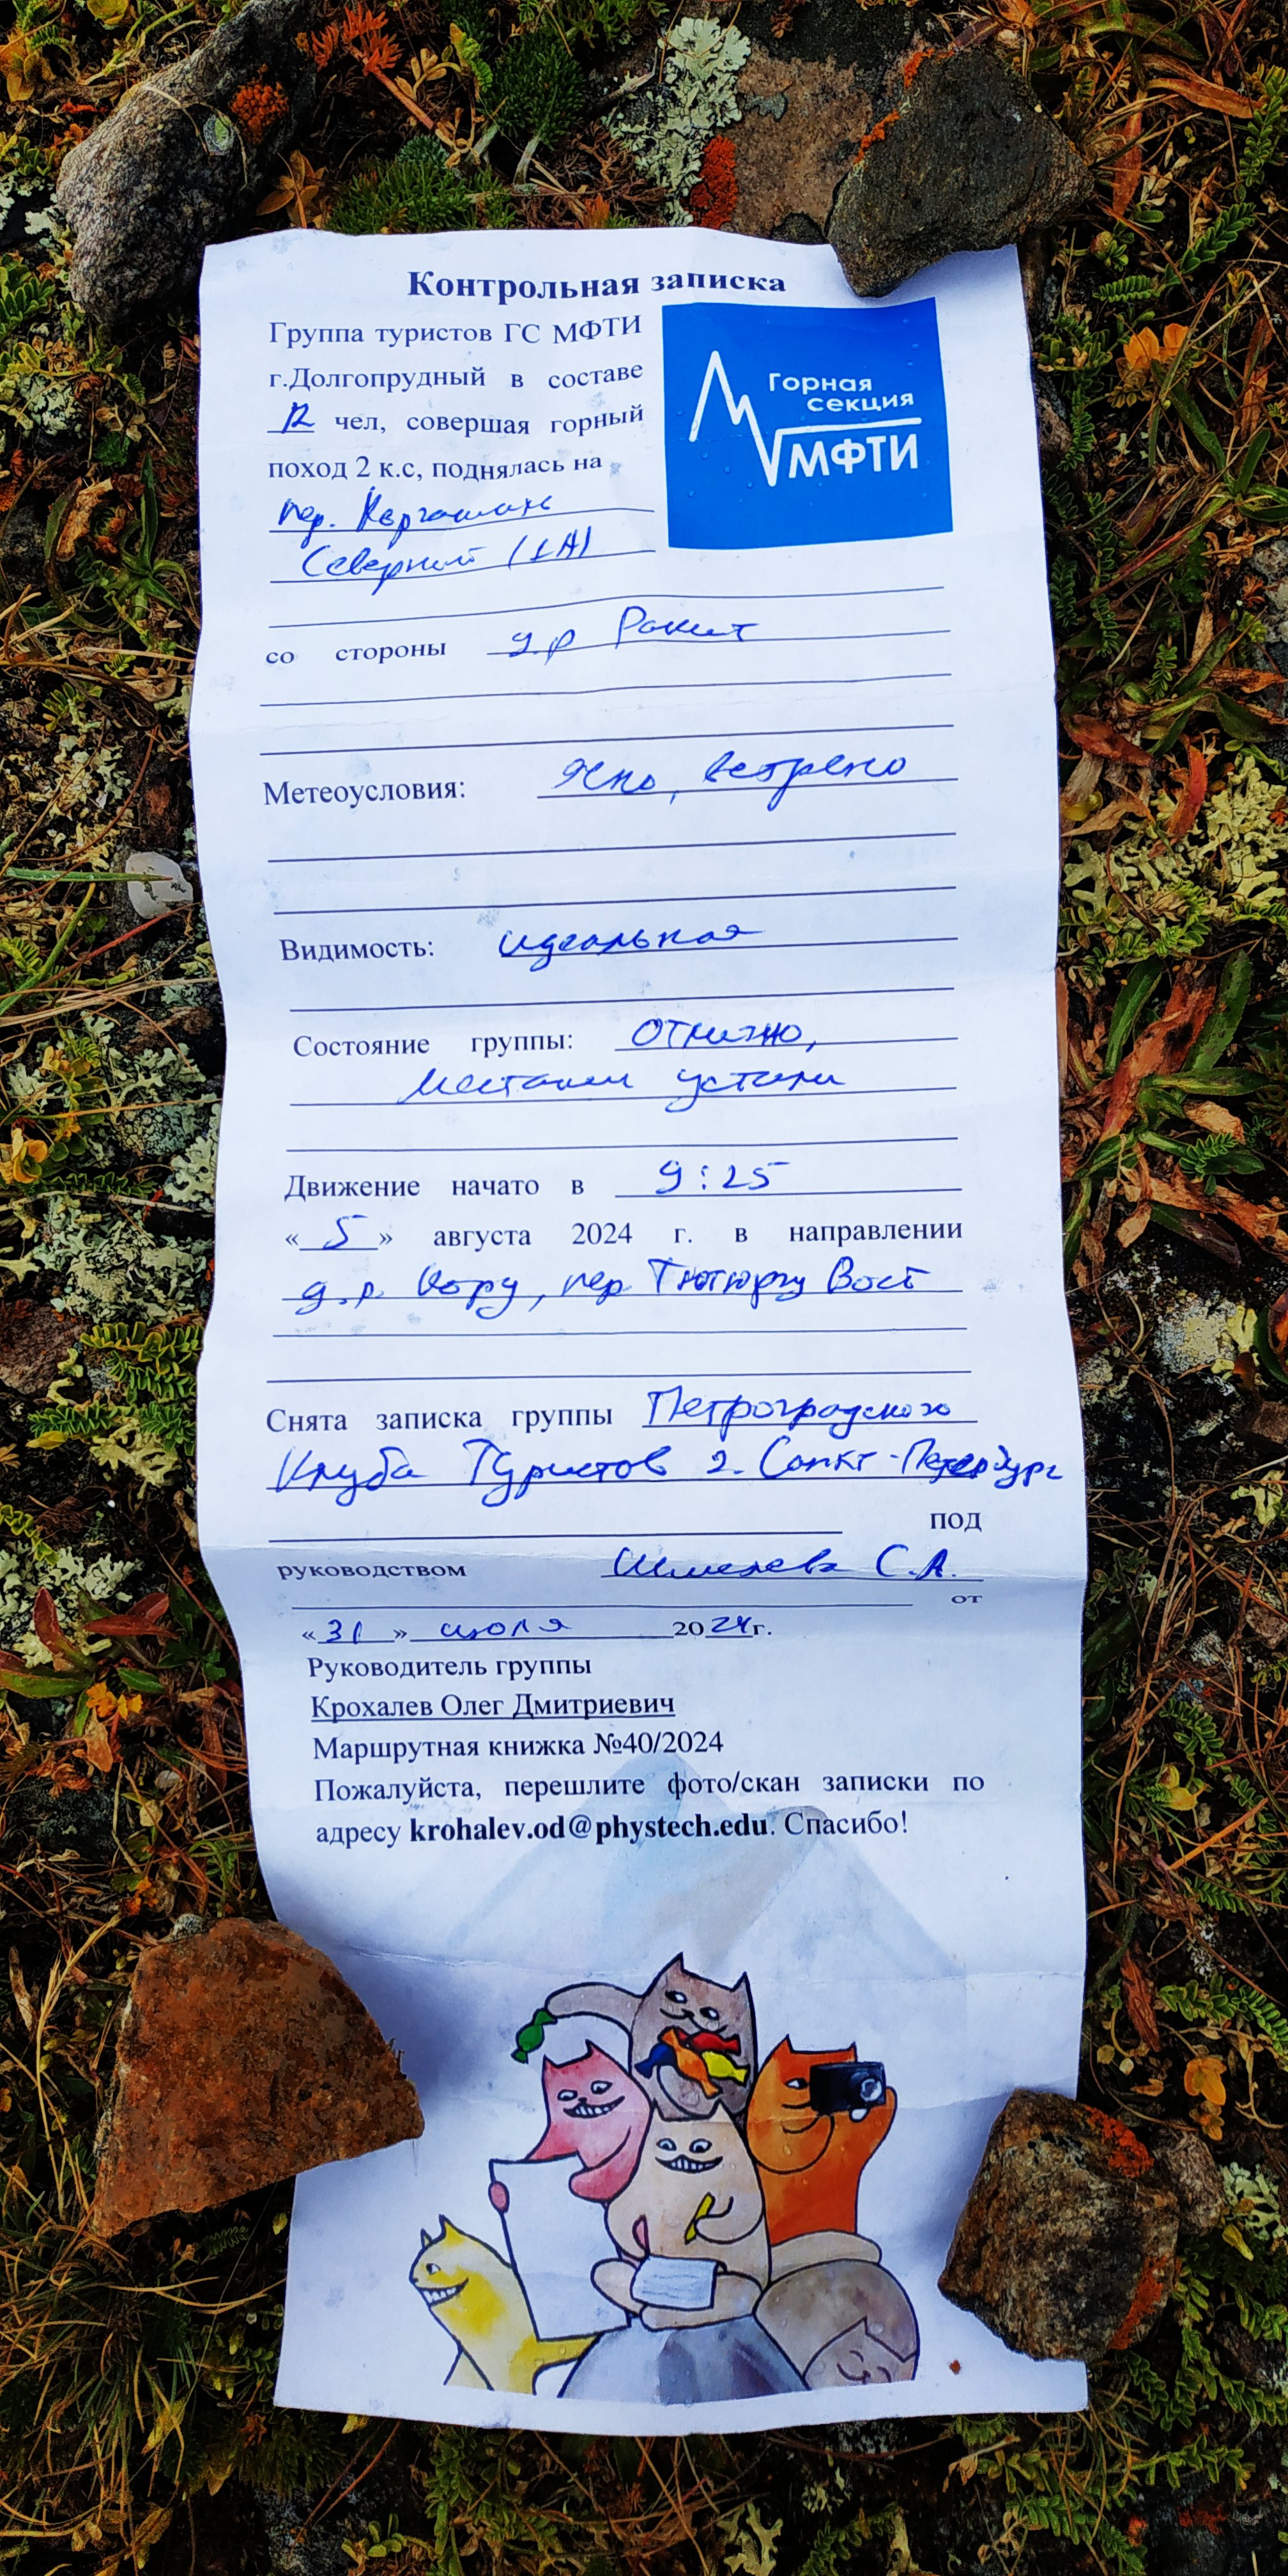 Контрольная записка
Группа туристов ГС МФТИ
г.Долгопрудный в составе
12 чел, совершая горный
поход 2 к.с, поднялась на
пер. Каргашиль
Северный (1А)
Горная
секция
МФТИ
со стороны д.р Ракит
Метеоусловия: Ясно, ветрено
Видимость: идеальная
Состояние группы: Отлично,
местами устали
Движение начато в 9:25
«5» августа 2024 г. в направлении
д.р. Кору, пер Тютюргу Вост
Снята записка группы Петроградского
Клуба Туристов г. Санкт-Петербург
под
руководством Шмелева С.А.
от
«31» июля 2024г.
Руководитель группы
Крохалев Олег Дмитриевич
Маршрутная книжка №40/2024
Пожалуйста, перешлите фото/скан записки по
адресу krohalev.od@phystech.edu. Спасибо!